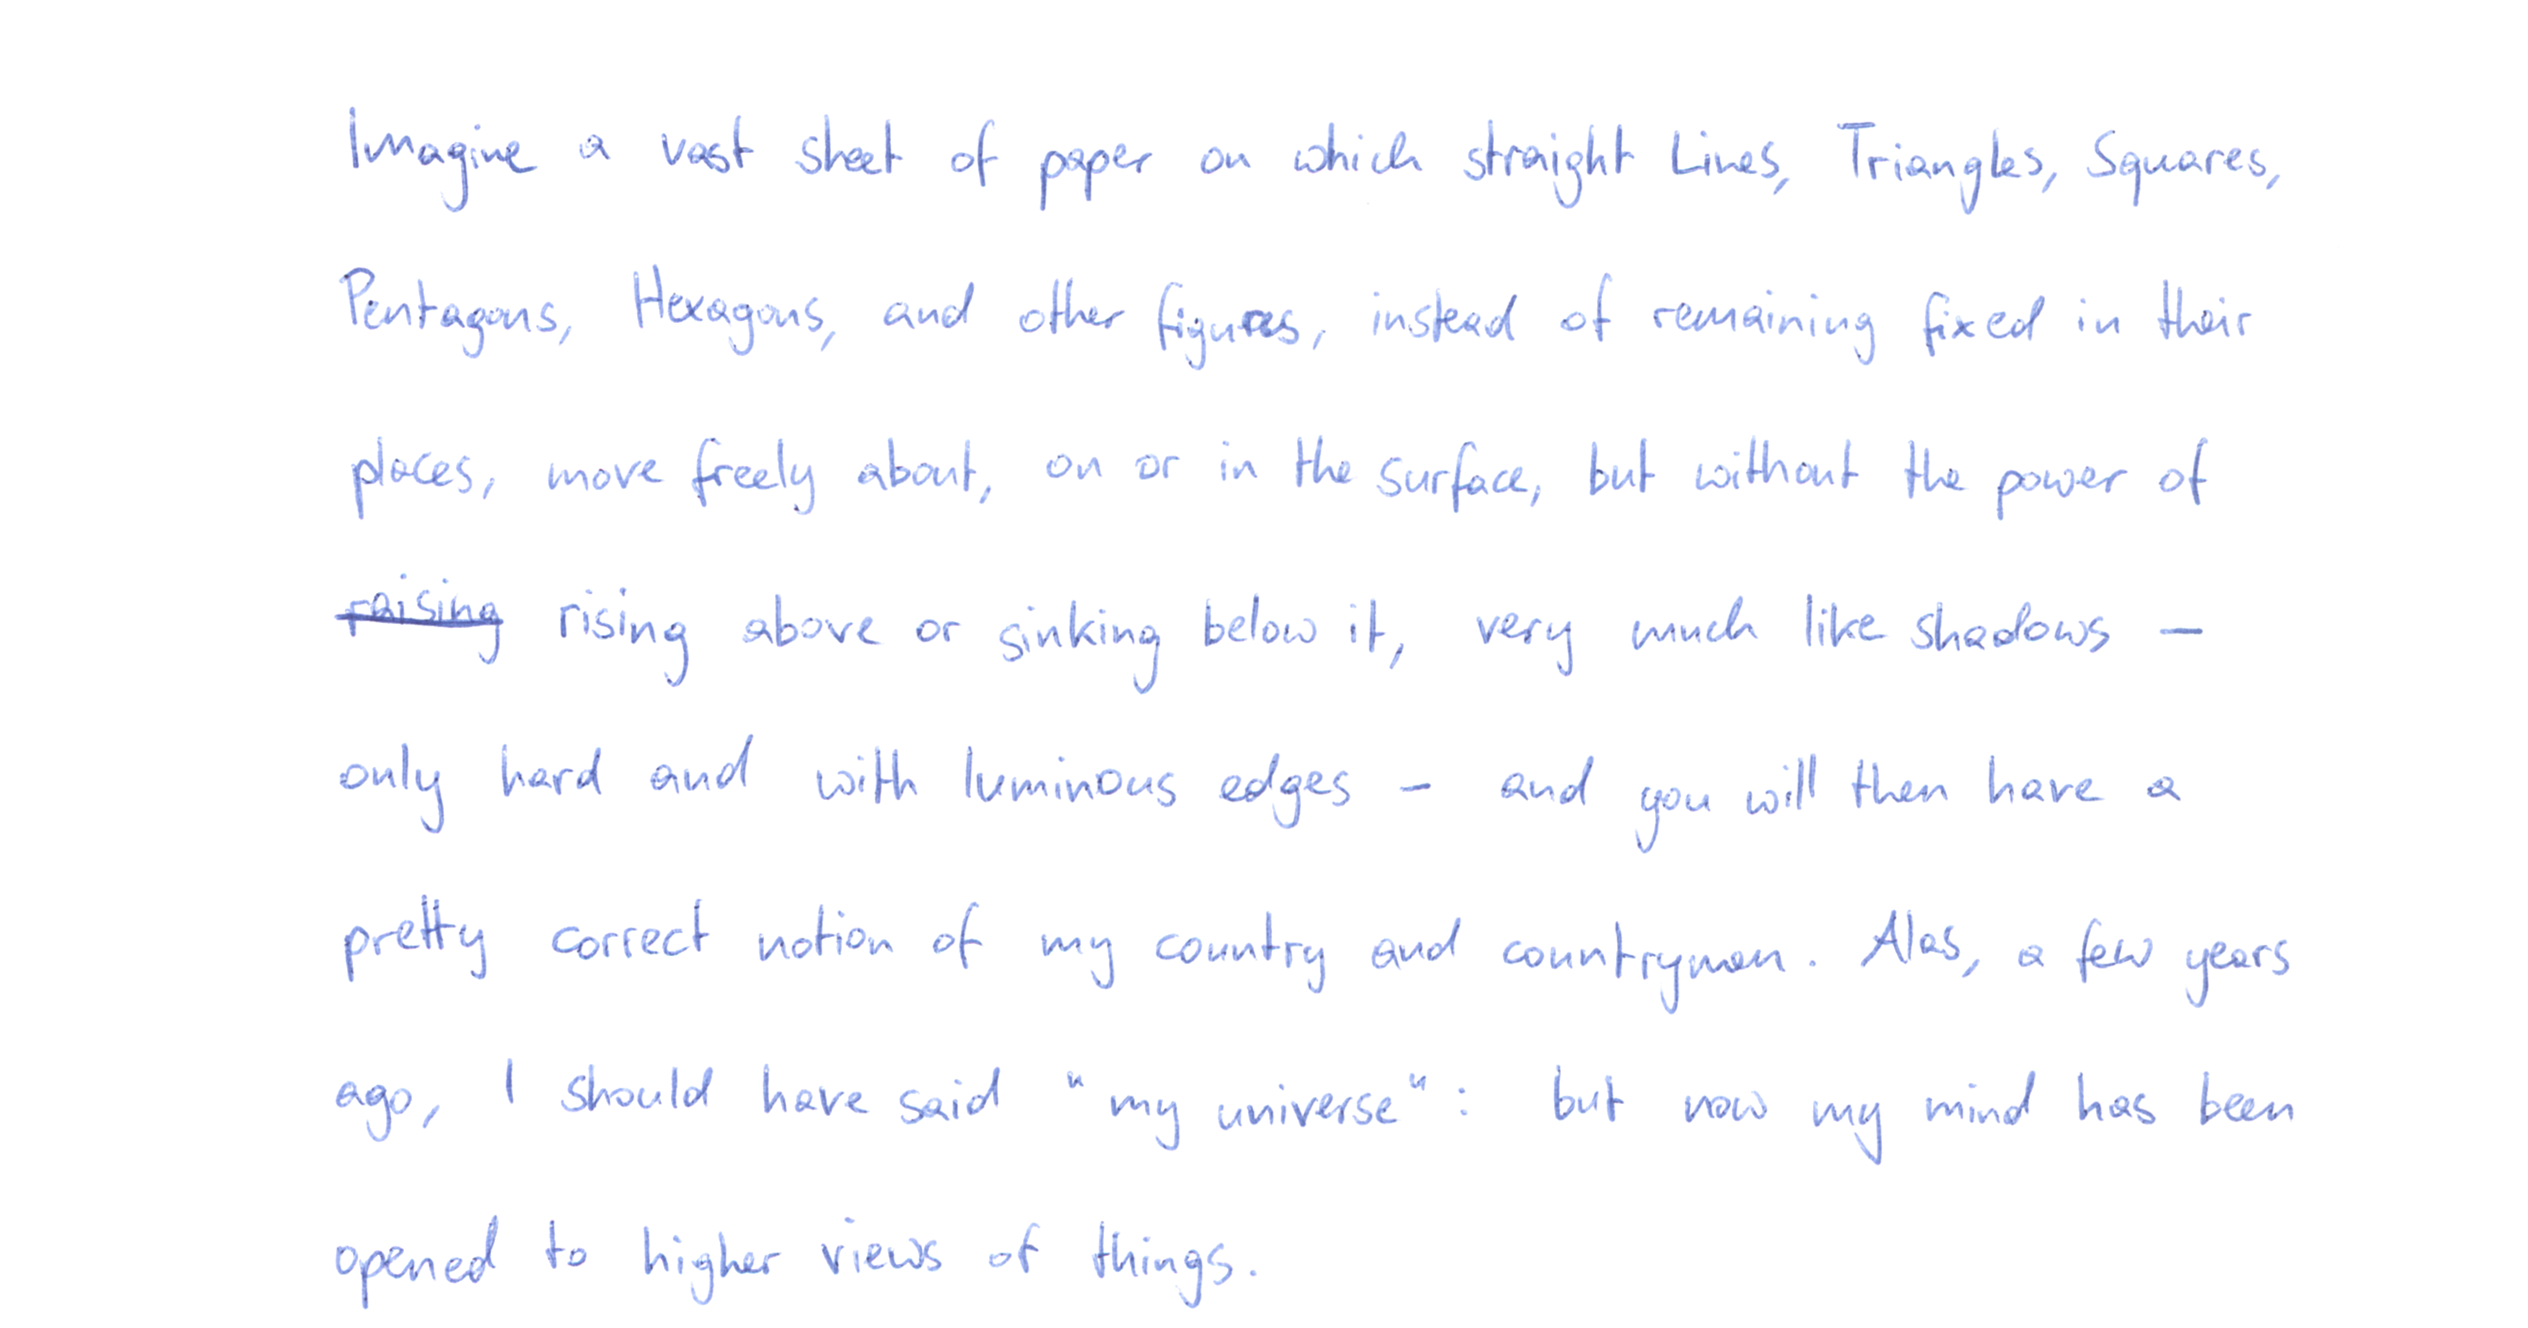 Imagine a vast sheet of paper on which straight Lines, Triangles, Squares,
Pentagons, Hexagons, and other figures, instead of remaining fixed in their
places, move freely about, on or in the surface, but without the power of
raising rising above or sinking below it, very much like shadows –
only hard and with luminous edges – and you will then have a
pretty correct notion of my country and countrymen. Alas, a few years
ago, I should have said "my universe": but now my mind has been
opened to higher views of things.